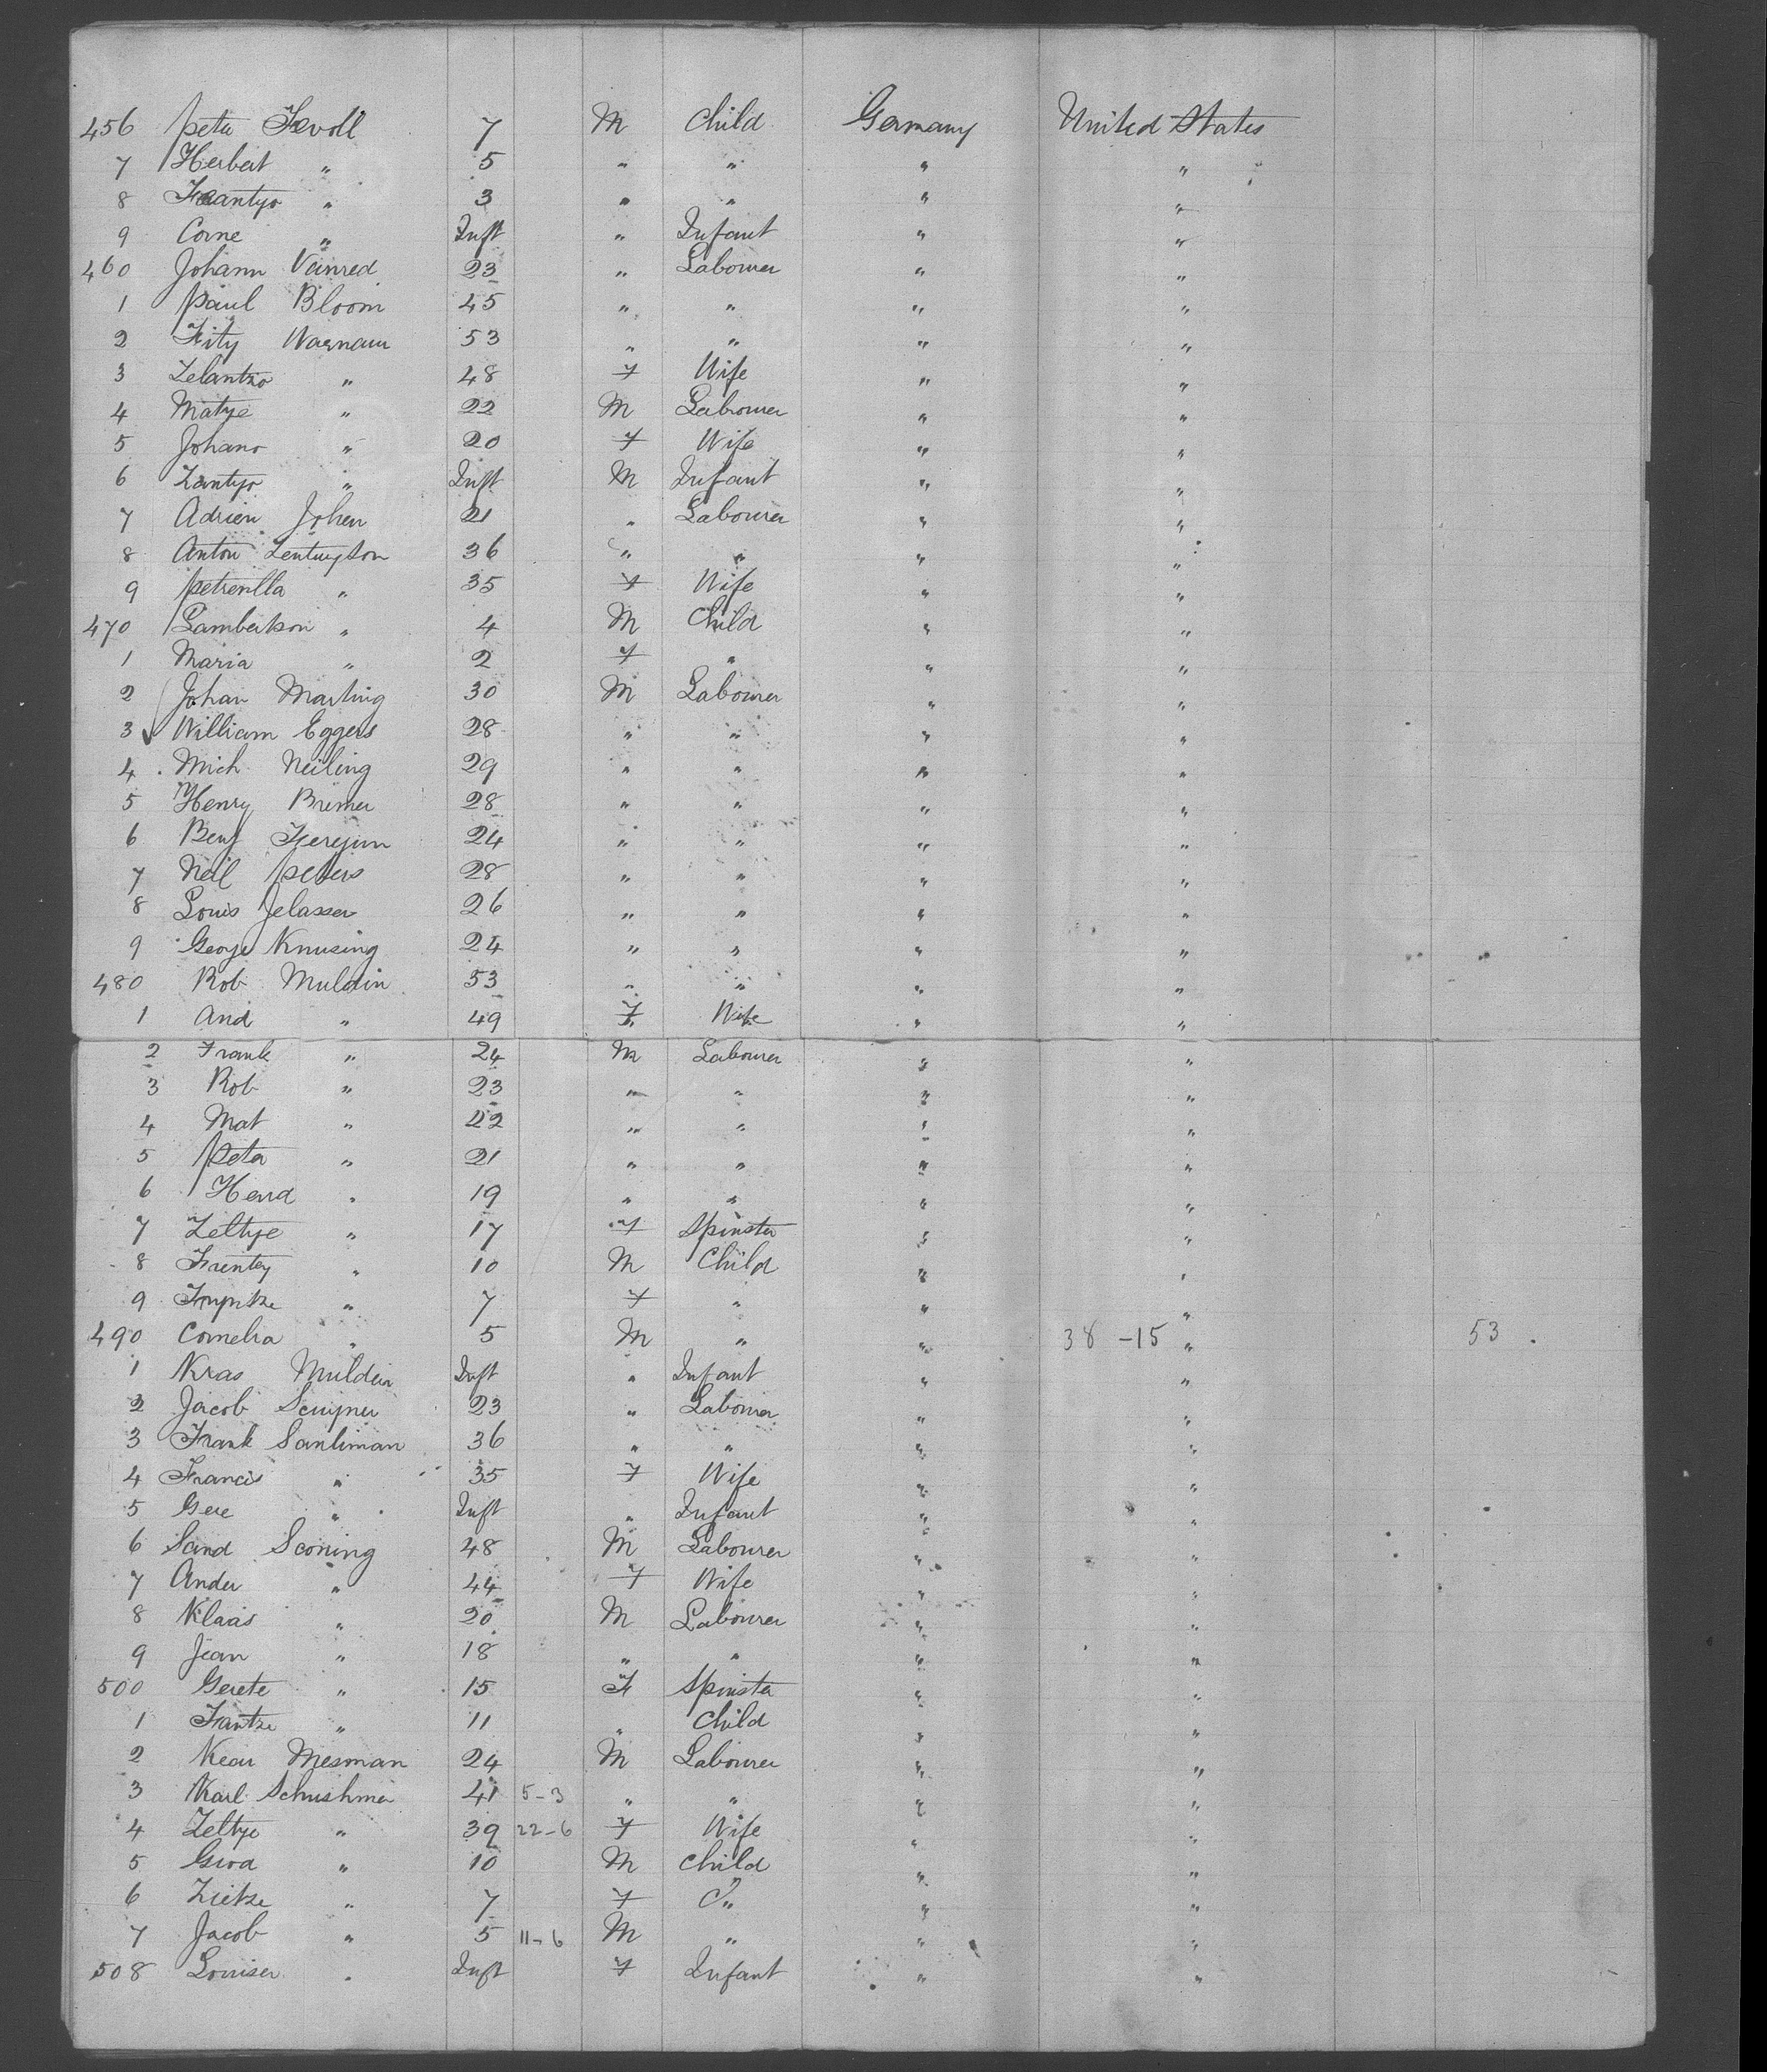 456 Peter Fevoll 7 M Child Germany United States
7 Herbert " 5 " " " "
8 Frantyo " 3 " " " "
9 Corne " Inft " Infant " "
460 Johann Vanred 23 " Labourer " "
1 Paul Bloom 45 " " " "
2 Fity Warnaur 53 " " " "
3 Zelantzo " 48 F Wife " "
4 Matye " 22 M Labourer " "
5 Johano " 20 F Wife " "
6 Zantyo " Inft M Infant " "
7 Adrien Johen 21 " Labourer " "
8 Anton Zentuyton 36 " " " "
9 Petrenlla " 35 F Wife " "
470 Lambertson " 4 M Child " "
1 Maria " 2 F " " "
2 Johan Marling 30 M Labourer " "
3 William Eggers 28 " " " "
4 Mich Neiling 29 " " " "
5 Henry Bremer 28 " " " "
6 Benj 24 " " " "
7 Neil Peters 28 " " " "
8 Louis Jelasser 26 " " " "
9 George Knusing 24 " " " "
480 Rob Muldin 53 " " " "
1 And " 49 F Wife " "
2 Frank " 24 M Labourer " "
3 Rob " 23 " " " "
4 Mat " 22 " " " "
5 Peter " 21 " " " "
6 Hend " 19 " " " "
7 Zeltye " 17 F Spinster " "
8 Frentey " 10 M Child " "
9 " 7 F " " "
490 Cornelia " 5 M " " 38 -15 " 53
1 Kras Mulder Inft " Infant " "
2 Jacob Scuyner 23 " Labourer " "
3 Frank Sanliman 36 " " " "
4 Francis " 35 F Wife " "
5 Gere " Inft " Infant " "
6 Sand Sconing 48 M Labourer " "
7 Ander " 44 F Wife " "
8 Klaas " 20 M Labourer " "
9 Jean " 18 " " " "
500 Gerete " 15 F Spinster " "
1 Frantze " 11 " Child " "
2 Kear Mesman 24 M Labourer " "
3 Karl Schushmer 41 5-3 " " " "
4 Zeltye " 39 22-6 F Wife " "
5 Giva " 10 M Child " "
6 Zietze " 7 F " " "
7 Jacob " 5 11-6 M " " "
508 Louiser " Inft F Infant " "